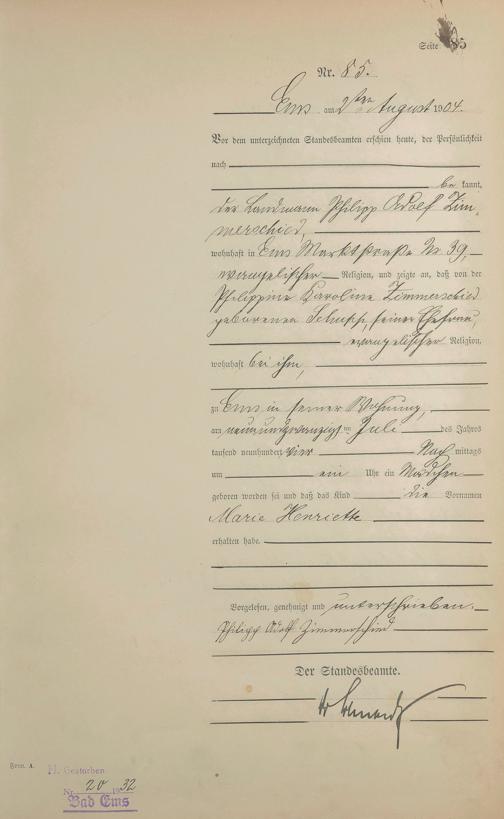 Seite 85
Nr. 85.
Ems am 2ten August 1904.
Vor dem unterzeichneten Standesbeamten erschien heute, der Persönlichkeit
nach
be kannt,
der Landmann Philipp Adolf Zim-
merschied,
wohnhaft in Ems Marktstraße Nr 39,
evangelischer Religion, und zeigte an, daß von der
Philippine Karoline Zimmerschied
geborenen Schupp, seiner Ehefrau,
evangelischer Religion,
wohnhaft bei ihm,
zu Ems in seiner Wohnung,
am neunundzwanzigsten Juli des Jahres
tausend neunhundert vier Nach mittags
um ein Uhr ein Mädchen
geboren worden sei und daß das Kind die Vornamen
Marie Henriette
erhalten habe.
Vorgelesen, genehmigt und unterschrieben.
Philipp Adolf Zimmerschied
Der Standesbeamte.
Form. A.
H. Gestorben
Nr. 20 1932
Bad Ems